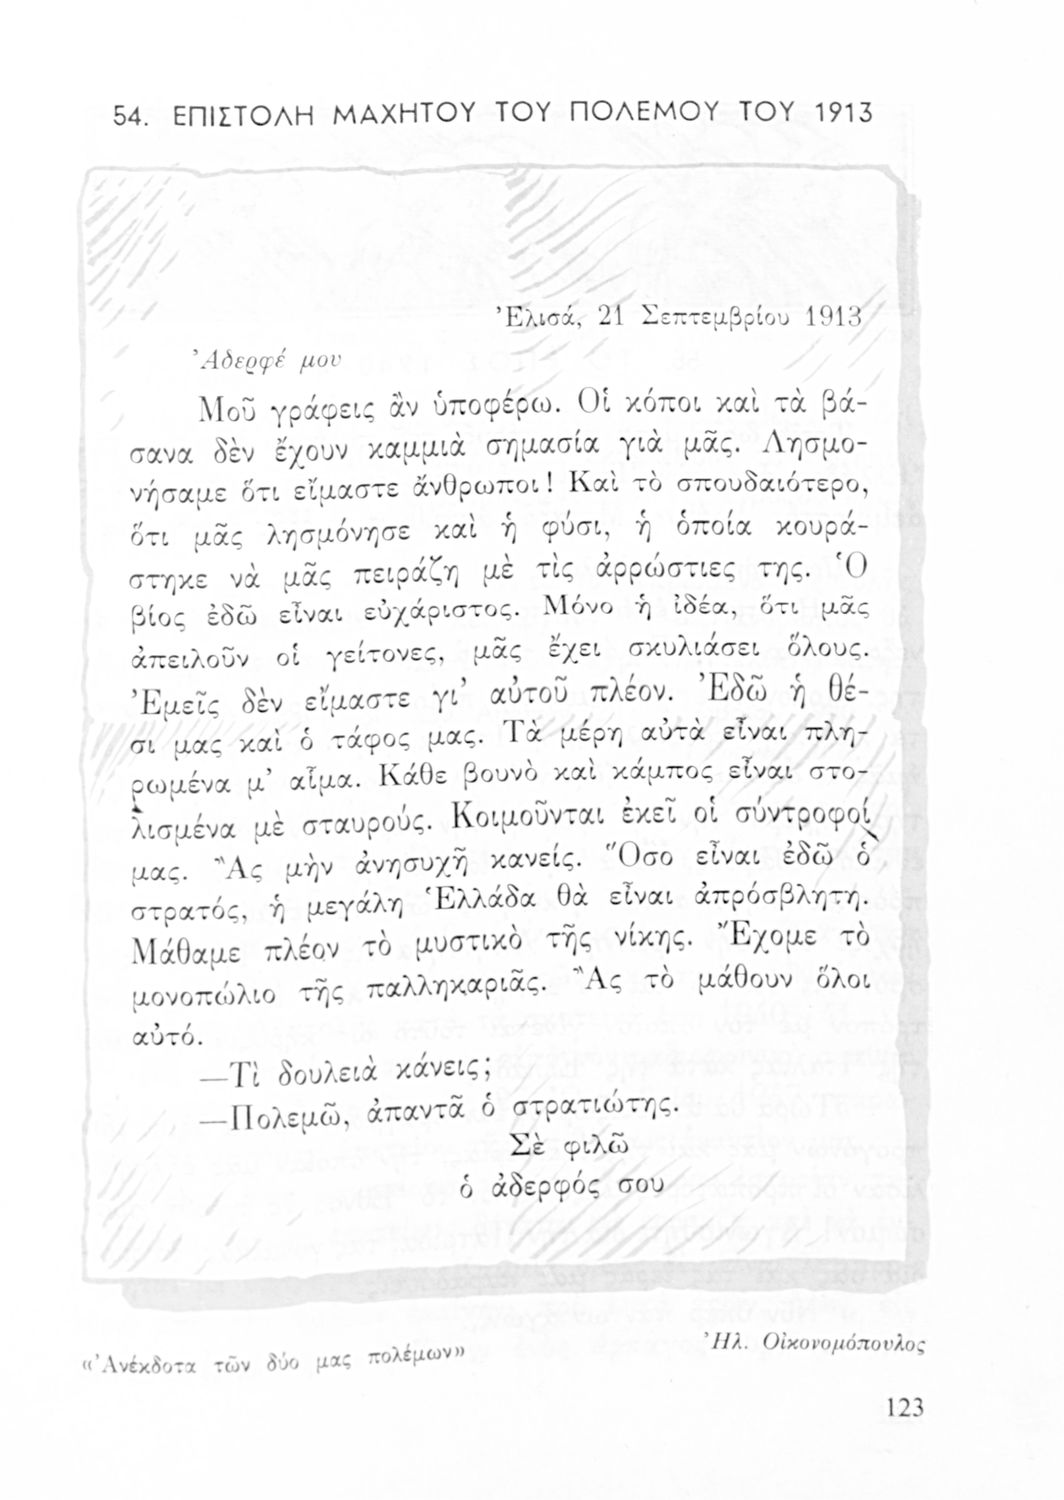 54. ΕΠΙΣΤΟΛΗ ΜΑΧΗΤΟΥ ΤΟΥ ΠΟΛΕΜΟΥ ΤΟΥ 1913
Ἐλισά, 21 Σεπτεμβρίου 1913
Ἀδερφέ μου
Μοῦ γράφεις ἂν ὑποφέρω. Οἱ κόποι καὶ τὰ βά-
σανα δὲν ἔχουν καμμιὰ σημασία γιὰ μᾶς. Λησμο-
νήσαμε ὅτι εἴμαστε ἄνθρωποι! Καὶ τὸ σπουδαιότερο,
ὅτι μᾶς λησμόνησε καὶ ἡ φύσι, ἡ ὁποία κουρά-
στηκε νὰ μᾶς πειράζη μὲ τὶς ἀρρώστιες της. Ὁ
βίος ἐδῶ εἶναι εὐχάριστος. Μόνο ἡ ἰδέα, ὅτι μᾶς
ἀπειλοῦν οἱ γείτονες, μᾶς ἔχει σκυλιάσει ὅλους.
Ἐμεῖς δὲν εἴμαστε γι’ αὐτοῦ πλέον. Ἐδῶ ἡ θέ-
σι μας καὶ ὁ τάφος μας. Τὰ μέρη αὐτὰ εἶναι πλη-
ρωμένα μ’ αἷμα. Κάθε βουνὸ καὶ κάμπος εἶναι στο-
λισμένα μὲ σταυρούς. Κοιμοῦνται ἐκεῖ οἱ σύντροφοί
μας. Ἂς μὴν ἀνησυχῆ κανείς. Ὅσο εἶναι ἐδῶ ὁ
στρατός, ἡ μεγάλη Ἑλλάδα θὰ εἶναι ἀπρόσβλητη.
Μάθαμε πλέον τὸ μυστικὸ τῆς νίκης. Ἔχομε τὸ
μονοπώλιο τῆς παλληκαριᾶς. Ἂς τὸ μάθουν ὅλοι
αὐτό.
—Τὶ δουλειὰ κάνεις;
—Πολεμῶ, ἀπαντᾶ ὁ στρατιώτης.
Σὲ φιλῶ
ὁ ἀδερφός σου
«Ἀνέκδοτα τῶν δύο μας πολέμων»
Ἠλ. Οἰκονομόπουλος
123